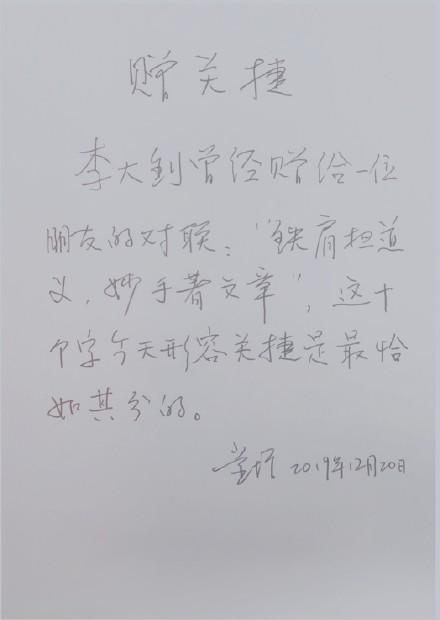 赠关捷
李大钊曾经赠给一位
朋友的对联：“铁肩担道
义，妙手著文章”，这十
个字今天形容关捷是最恰
如其分的。
2019年12月20日